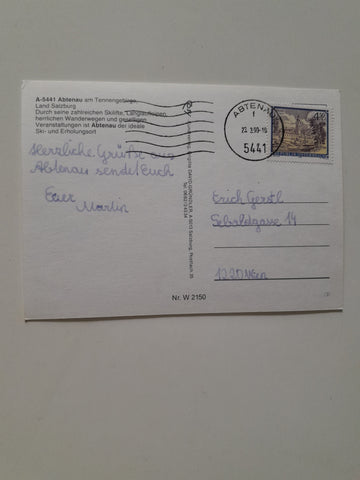 A-5441 Abtenau am Tennengebirge,
Land Salzburg
Durch seine zahlreichen Skilifte, Langlaufloipen,
herrlichen Wanderwegen und geselligen
Veranstaltungen ist Abtenau der ideale
Ski- und Erholungsort
Herzliche Grüße aus
Abtenau sendet Euch
Euer
Martin
Nr. W 2150
ABTENAU
5441
Erich Gerstl
Sebaldgasse 14
1220 Wien